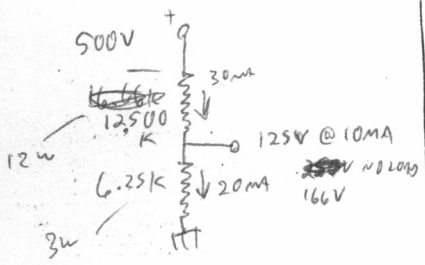 +
500V
30mA
12,500
K
125V @ 10MA
NO LOAD
166V
12W
6.25K
20mA
3W